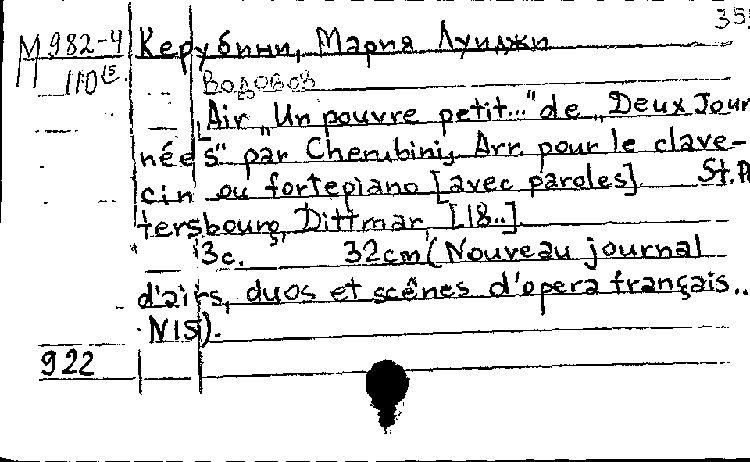 35
М 982-4 Керубини, Мария Луиджи
110 Водовоз
[Air „Un pouvre petit..." de „Deux Jour
nées" par Cherubini, Arr. pour le clave-
cin ou fortepiano [avec paroles]. St. Pe
tersbourg, Dittmar, [18..]
3c. 32cm (Nouveau journal
d'airs, duos et scênes d'opera français..
N15).
922